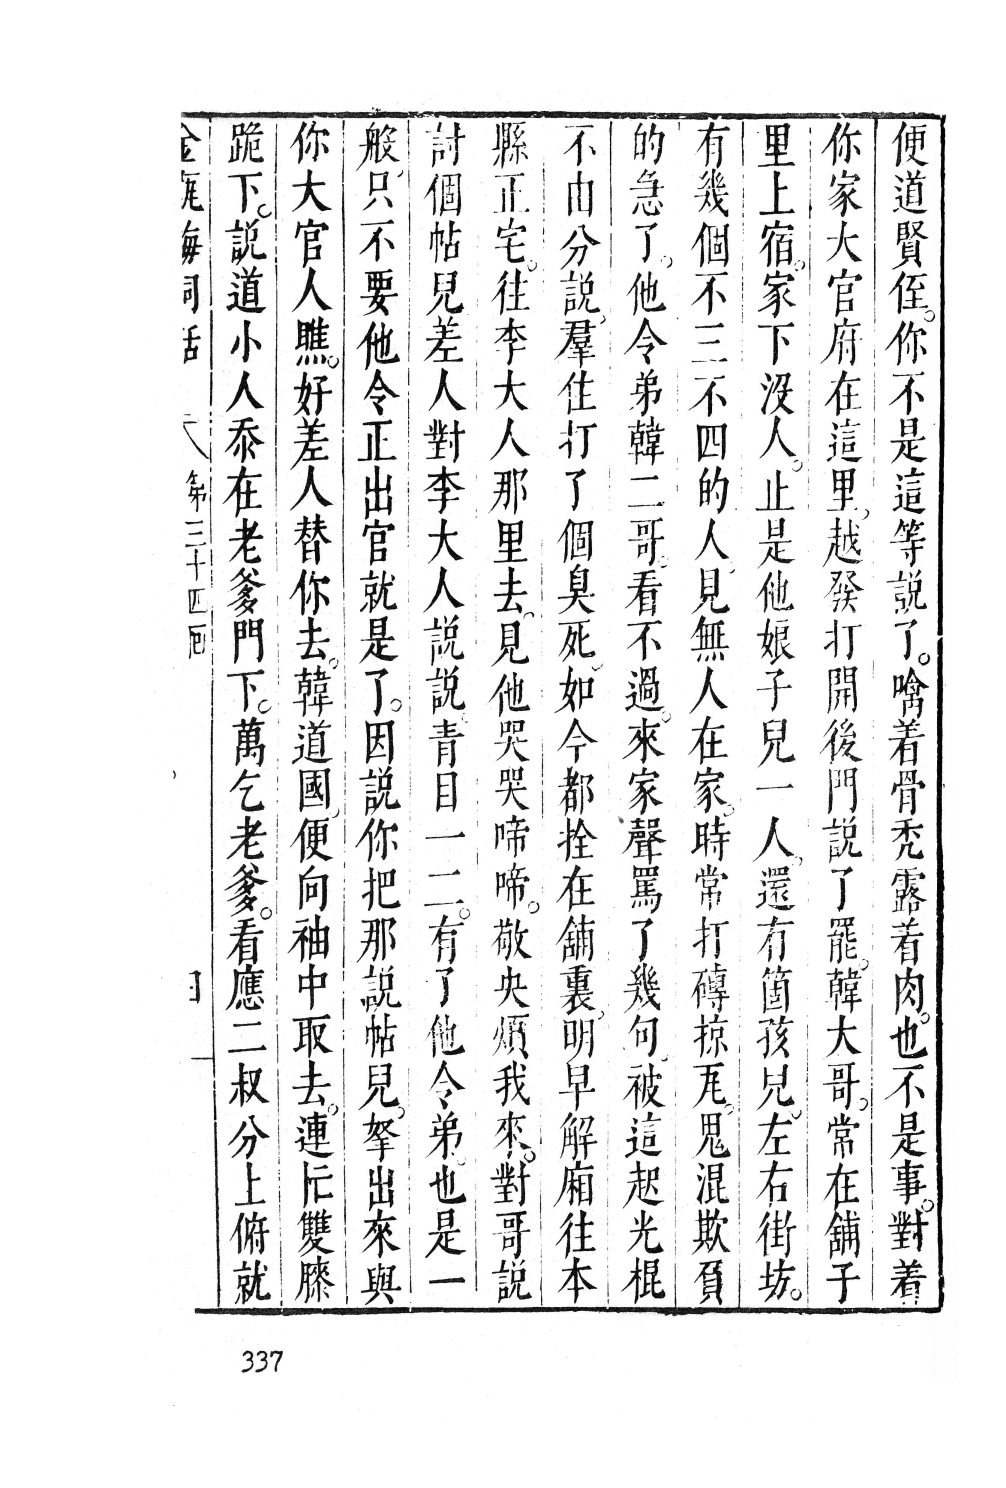 便道賢侄。你不是這等説了。噙着骨禿露着肉。也不是事。對着
你家大官府在這里。越發打開後門説了罷。韓大哥。常在舖子
里上宿。家下没人。止是他娘子兒一人。還有箇孩兒。左右街坊。
有幾個不三不四的人。見無人在家。時常打磚掠瓦。鬼混欺負
的急了。他令弟韓二哥。看不過。來家聲罵了幾句。被這起光棍
不由分説。羣住打了個臭死。如今都拴在舖裏。明早解廂往本
縣正宅。往李大人那里去。見他哭哭啼啼。敬央煩我來。對哥説
討個帖兒差人對李大人説説。青目一二。有了他令弟。也是一
般。只不要他令正出官就是了。因説你把那説帖兒。拏出來與
你大官人瞧。好差人替你去。韓道國。便向袖中取去。連忙雙膝
跪下。説道小人忝在老爹門下。萬乞老爹。看應二叔分上俯就
金瓶梅詞話 第三十四回 四
337